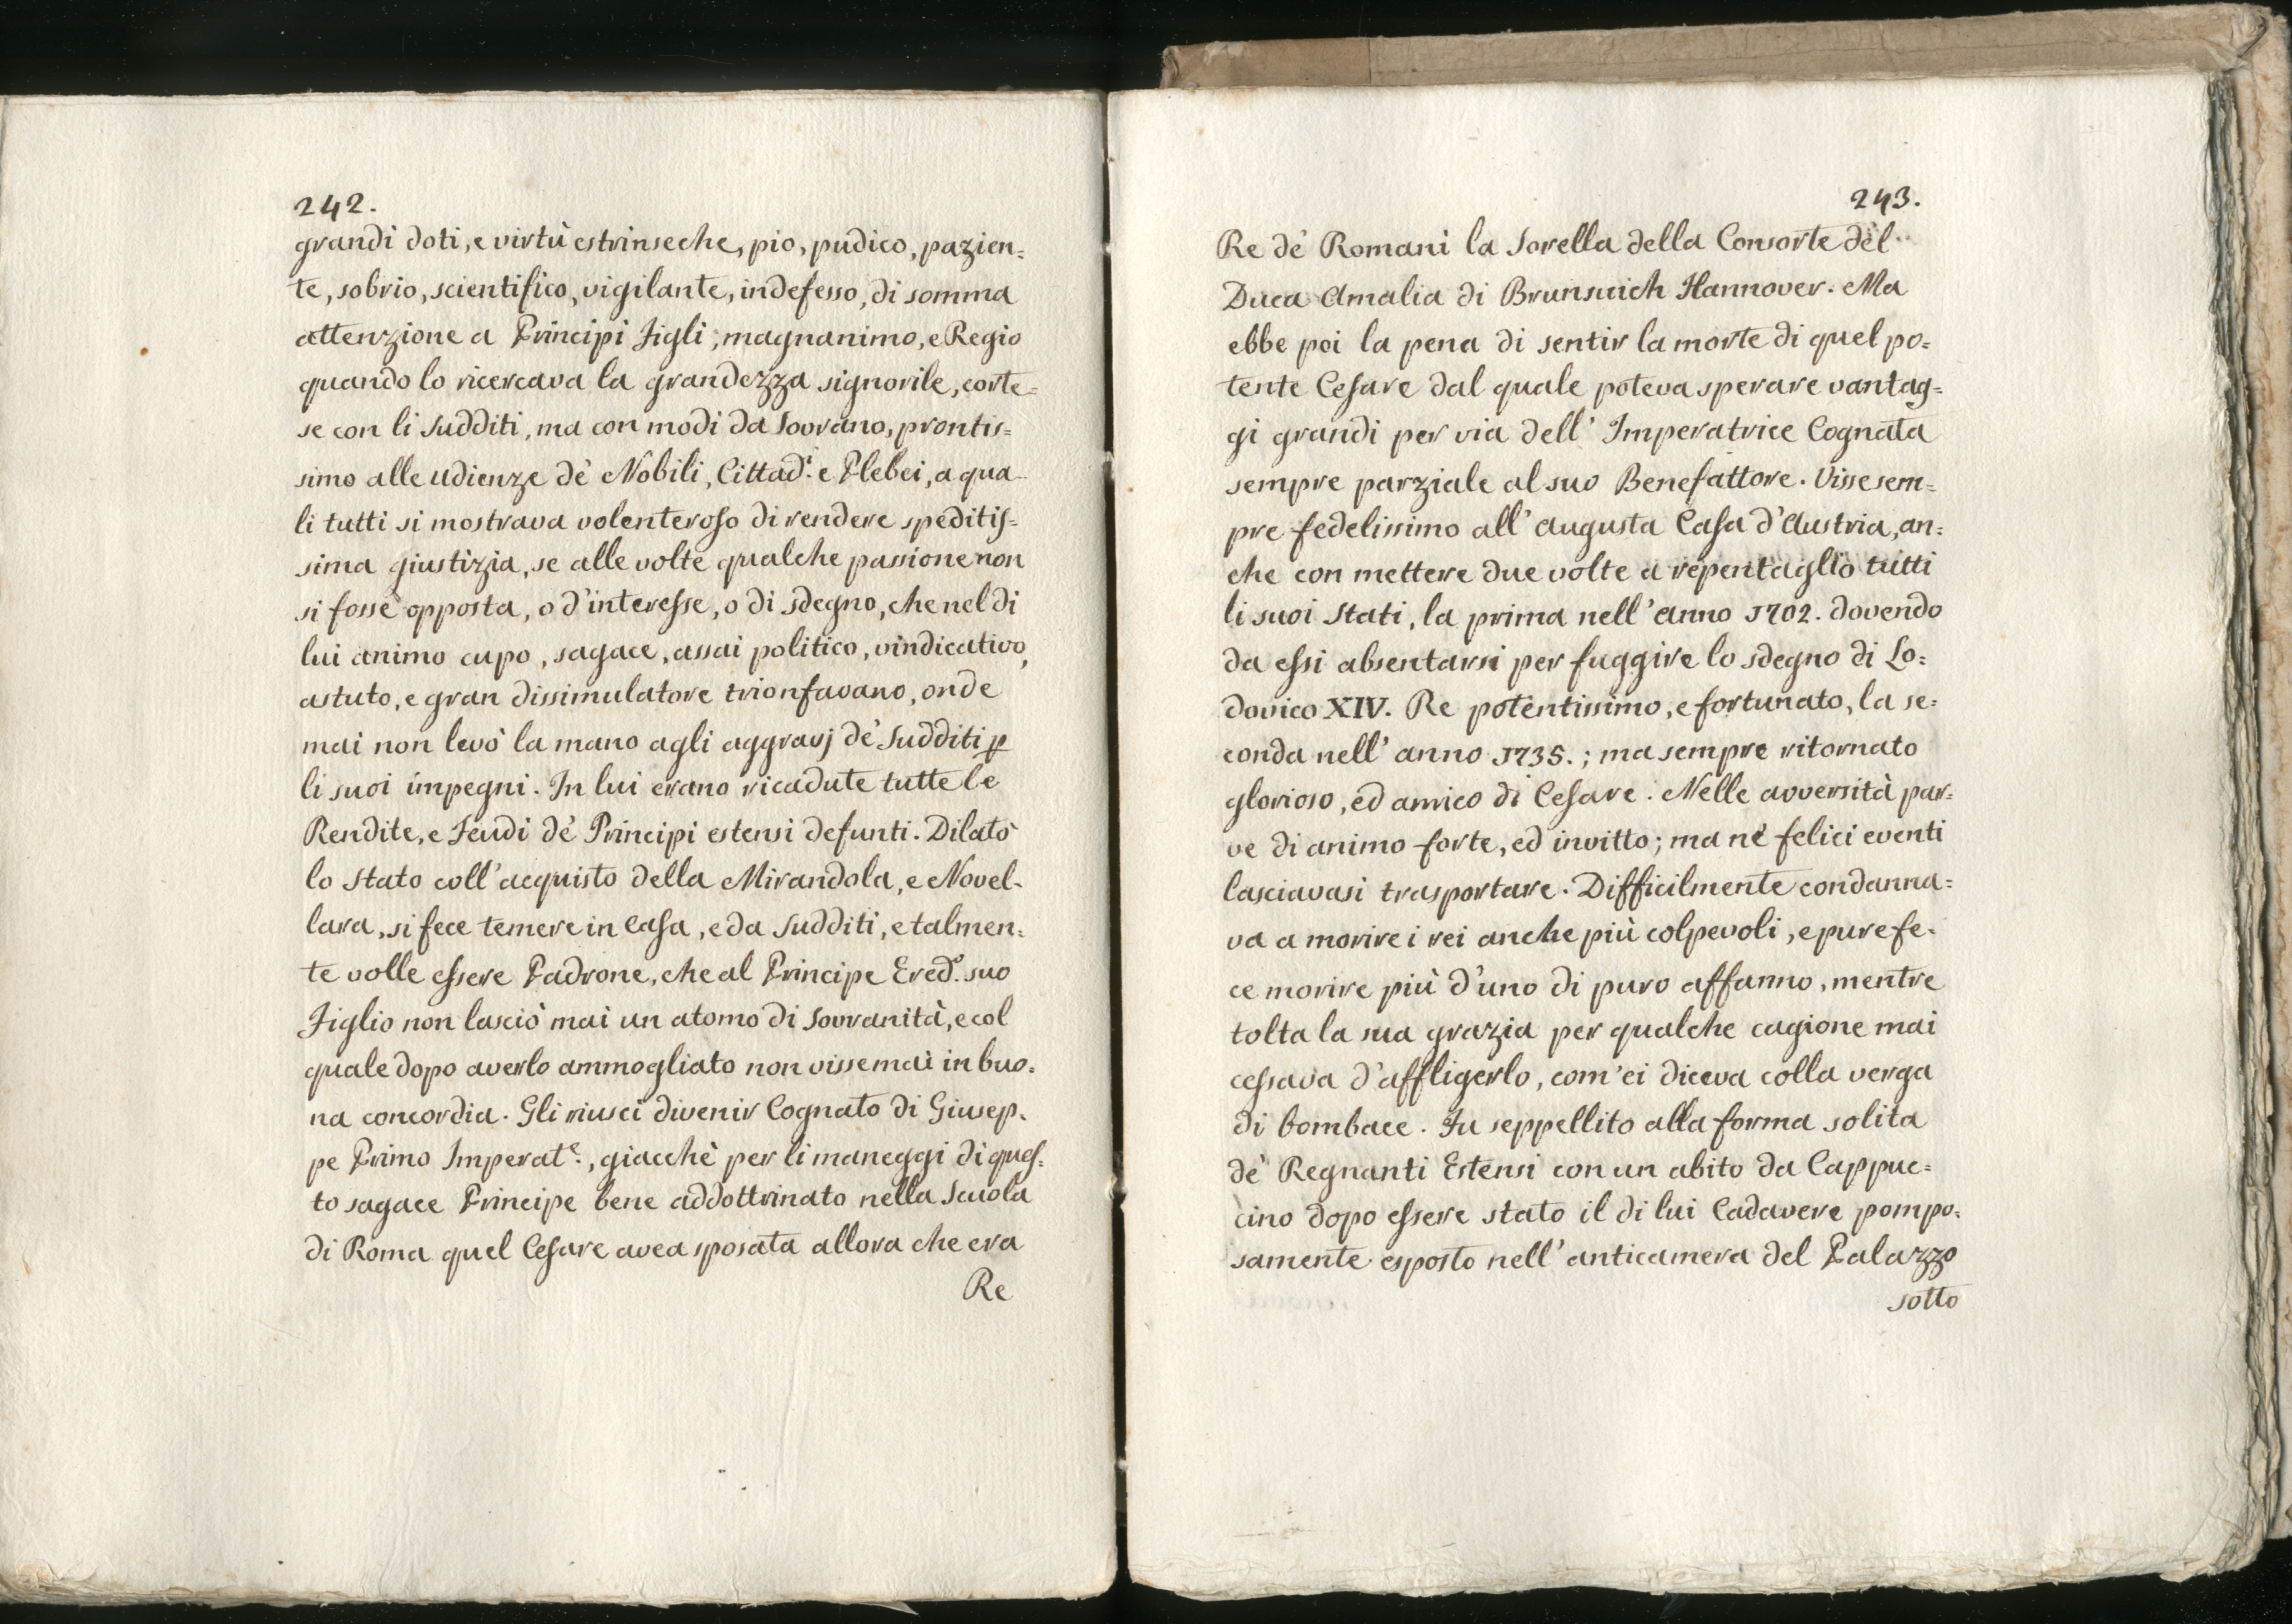 242.
grandi doti, e virtù estrinseche, pio, pudico, pazien=
te, sobrio, scientifico, vigilante, indefesso, di somma
attenzione a Principi Figli, magnanimo, e Regio
quando lo ricercava la grandezza signorile, corte=
se con li Sudditi, ma con modi da Sovrano, prontis=
simo alle udienze dè Nobili, Cittad.i e Plebei, a qua=
li tutti si mostrava volenteroso di rendere speditis=
sima giustizia, se alle volte qualche passione non
si fosse opposta, o d'interesse, o di sdegno, che nel di
lui animo cupo, sagace, assai politico, vindicativo,
astuto, e gran dissimulatore trionfavano, onde
mai non levò la mano agli aggravj dè Sudditi p
li suoi impegni. In lui erano ricadute tutte le
Rendite, e Feudi dè Principi estensi defunti. Dilatò
lo Stato coll'acquisto della Mirandola, e Novel=
lara, si fece temere in Casa, e da Sudditi, e talmen=
te volle essere Padrone, che al Principe Ered.o suo
Figlio non lasciò mai un atomo di Sovranità, e col
quale dopo averlo ammogliato non visse mai in buo=
na concordia. Gli riuscì divenir Cognato di Giusep=
pe Primo Imperat.e, giacchè per li maneggi di ques=
to sagace Principe bene addottrinato nella Scuola
di Roma quel Cesare avea sposata allora che era
Re
243.
Re dè Romani la Sorella della Consorte del
Duca Amalia di Brunsuich Hannover. Ma
ebbe poi la pena di sentir la morte di quel po=
tente Cesare dal quale poteva sperare vantag=
gi grandi per via dell' Imperatrice Cognata
sempre parziale al suo Benefattore. Visse sem=
pre fedelissimo all' augusta Casa d'Austria, an=
che con mettere due volte a repentaglio tutti
li suoi Stati, la prima nell'anno 1702. dovendo
da essi absentarsi per fuggire lo sdegno di Lo=
dovico XIV. Re potentissimo, e fortunato, la se=
conda nell' anno 1735.; ma sempre ritornato
glorioso, ed amico di Cesare. Nelle avversità par=
ve di animo forte, ed invitto; ma nè felici eventi
lasciavasi trasportare. Difficilmente condanna=
va a morire i rei anche più colpevoli, e pure fe=
ce morire più d'uno di puro affanno, mentre
tolta la sua grazia per qualche cagione mai
cessava d'affligerlo, com'ei diceva colla verga
di bombace. Fu seppellito alla forma solita
dè Regnanti Estensi con un abito da Cappuc=
cino dopo essere stato il di lui Cadavere pompo=
samente esposto nell'anticamera del Palazzo
sotto